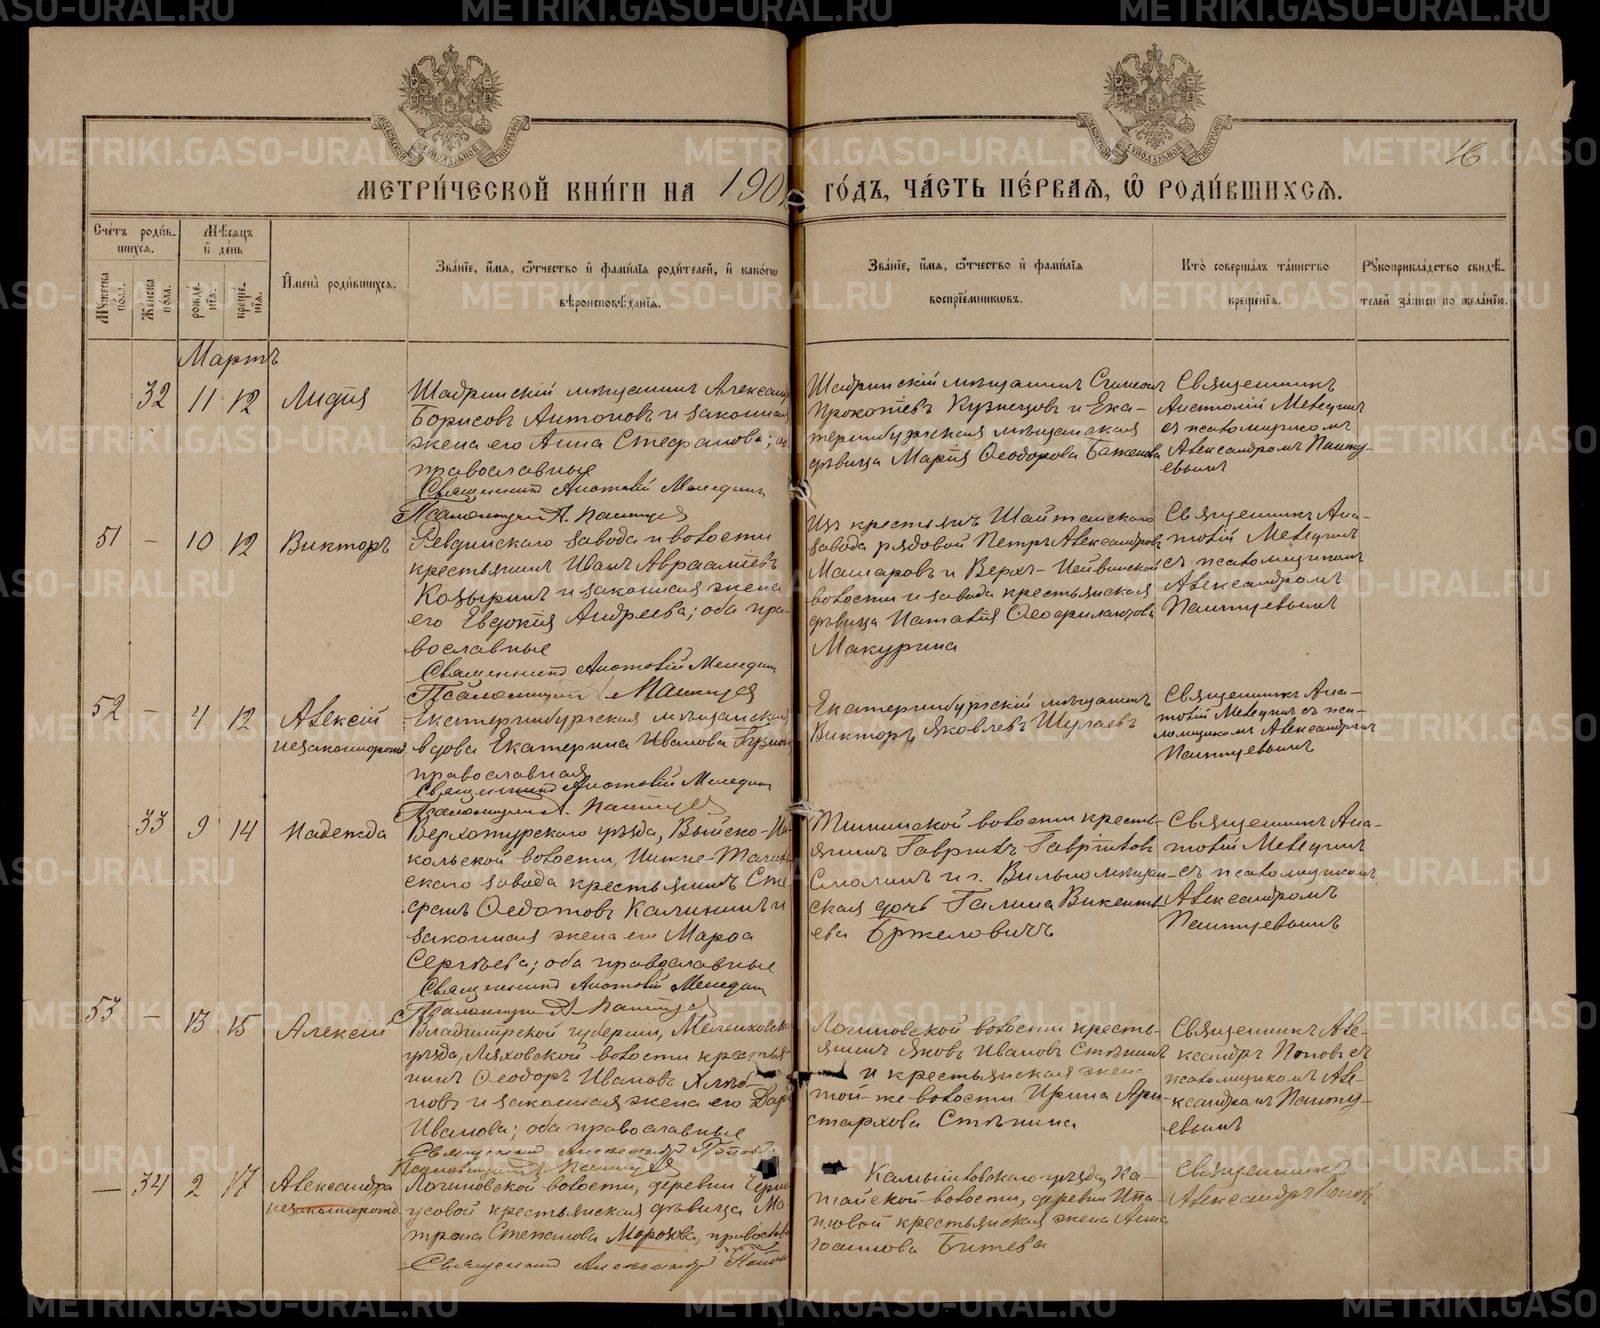 METRIKI.GASO-URAL.RU
16
МЕТРИ́ЧЕСКОЙ КНИ́ГИ НА 190 ГО́ДЪ, ЧА́СТЬ ПЕ́РВАЯ, Ѡ РОДИ́ВШИХСЯ.
Сче́тъ роди́вшихся.
Мѣ́сяцъ и҆ де́нь
Му́жеска полл.
Же́нска полл.
рожде́нїя.
креще́нїя.
И҆мена̀ роди́вшихся.
Зва́нїе, и҆́мя, ѻ҆́тчество и҆ фамѝлїя роди́телей, и҆ како́гѡ вѣроисповѣ́данїя.
Зва́нїе, и҆́мя, ѻ҆́тчество и҆ фамѝлїя воспрїе́мникѡвъ.
Кто̀ соверша́лъ та́инство креще́нїя.
Рꙋкоприкла́дство свидѣ́телей за́писи по жела́нїю.
Мартъ
32 11 12 Лидія
Шадринскій мѣщанинъ Александръ
Борисовъ Антоновъ и законная
жена его Анна Стефанова; оба
православные
Священникъ Анатолій Меледин
Псаломщикъ А. Пантуев
Шадринскій мѣщанинъ Симеонъ
Прокопіевъ Кузнецовъ и Ека-
теринбургская мѣщанская
дѣвица Марія Ѳеодорова Баженова
Священникъ
Анатолій Меледин
съ псаломщикомъ
Александромъ Панту-
евымъ
51 — 10 12 Викторъ
Ревдинскаго завода и волости
крестьянинъ Иванъ Авраамовъ
Козыринъ и законная жена
его Евдокія Андреева; оба пра-
вославные
Священникъ Анатолій Меледин
Псаломщикъ А. Пантуев
Изъ крестьянъ Шайтанскаго
завода рядовой Петръ Александровъ
Макаровъ и Верхъ-Нейвинской
волости и завода крестьянская
дѣвица Наталія Ѳеофилактова
Макурина
Священникъ Ана-
толій Меледин
съ псаломщикомъ
Александромъ
Пантуевымъ
52 — 4 12 Алексій
незаконнорожд.
Екатеринбургская мѣщанская
вдова Екатерина Иванова
православная
Священникъ Анатолій Меледин
Псаломщикъ А. Пантуев
Екатеринбургскій мѣщанинъ
Викторъ Яковлевъ Шулаевъ
Священникъ Ана-
толій Меледин съ пса-
ломщикомъ Александромъ
Пантуевымъ
33 9 14 Надежда
Верхотурскаго уѣзда, Выйско-Ни-
кольской волости, Нижне-Тагиль-
скаго завода крестьянинъ Сте-
фанъ Ѳедотовъ Калининъ и
законная жена его Марѳа
Сергѣева; оба православные
Священникъ Анатолій Меледин
Псаломщикъ А. Пантуев
волости кресть-
янинъ Гавріилъ Гавріиловъ
Смолинъ и г. Вильно мѣщан-
ская дочь Галина Викентьева
Бржеловичъ
Священникъ Ана-
толій Меледин
съ псаломщикомъ
Александромъ
Пантуевымъ
53 — 13 15 Алексій
Владимірской губерніи, Меленковскаго
уѣзда, Ляховской волости крестья-
нинъ Ѳеодоръ Ивановъ
и законная жена его Дарья
Иванова; оба православные
Священникъ Александръ Попов
Псаломщикъ А. Пантуев
Логиновской волости кресть-
янинъ Яковъ Ивановъ Стѣнинъ
и крестьянская жена
той-же волости Ирина Ари-
стархова Стѣнина
Священникъ Але-
ксандръ Поповъ съ
псаломщикомъ Але-
ксандромъ Панту-
евымъ
— 34 2 17 Александра
незаконнорожд.
Логиновской волости, деревни
крестьянская дѣвица Ма-
трона Степанова Морозова, православная
Священникъ Александръ Попов
Камышловскаго уѣзда, Ка-
тайской волости, деревни Ипа-
товой крестьянская жена Анна
Іоаннова Битева
Священникъ
Александръ Поповъ